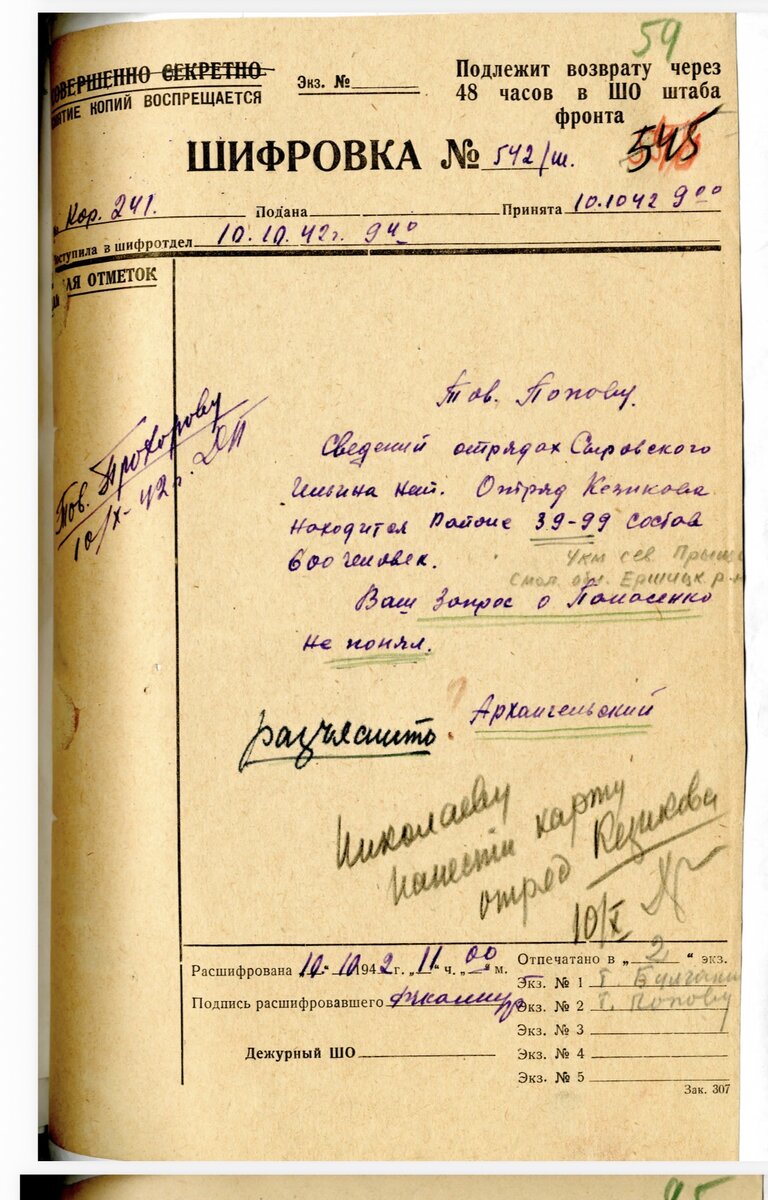 59
СОВЕРШЕННО СЕКРЕТНО
СНЯТИЕ КОПИЙ ВОСПРЕЩАЕТСЯ
Экз. №
Подлежит возврату через
48 часов в ШО штаба
фронта
545
ШИФРОВКА № 542/ш.
Кор. 241.
Подана
Принята 10.10 42 9 00
Поступила в шифротдел 10.10.42г. 9 40
ДЛЯ ОТМЕТОК
Тов. Прохорову
10/X-42г. ДП
Тов. Попову.
Сведений отрядах Сыровского
Ильина нет. Отряд Кезикова
находится районе 39-99 состав
600 человек.
4км сев
Смол. обл. Ершицк. р-н
Ваш запрос о
не понял.
Архангельский
?
разъяснить.
Николаеву
нанести карту
отряд Кезикова
10/X
Расшифрована "10" 10 1942 г. "11" ч. "00" м.
Подпись расшифровавшего
Дежурный ШО
Отпечатано в "2" экз.
Экз. № 1 т. Булганину
Экз. № 2 т. Попову
Экз. № 3
Экз. № 4
Экз. № 5
Зак. 307